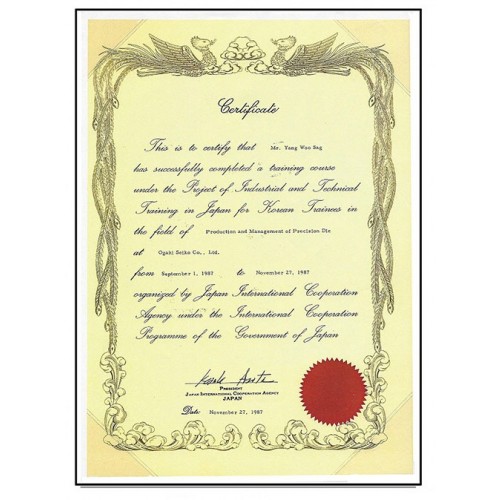 Certificate
This is to certify that Mr. Yang Woo Seg
has successfully completed a training course
under the Project of Industrial and Technical
Training in Japan for Korean Trainees in
the field of Production and Management of Precision Die
at Ogaki Seiko Co., Ltd.
from September 1, 1987 to November 27, 1987
organized by Japan International Cooperation
Agency under the International Cooperation
Programme of the Government of Japan
President
Japan International Cooperation Agency
JAPAN
Date: November 27, 1987